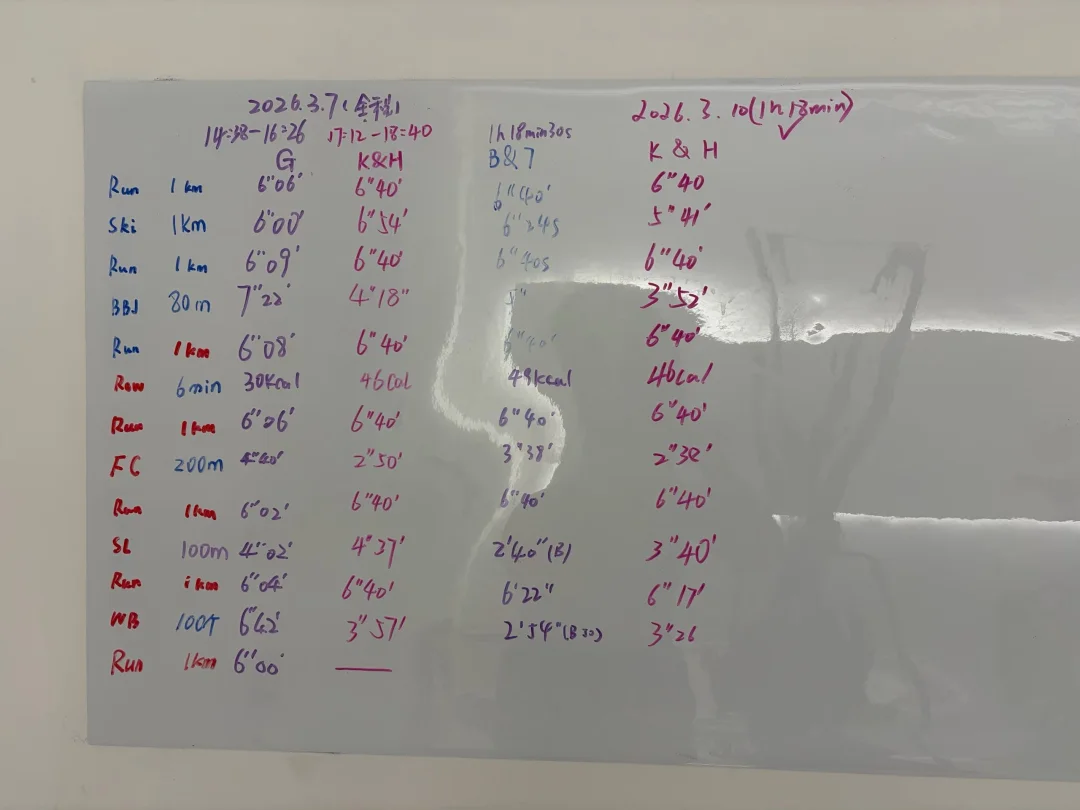 2026.3.7(全程) 2026.3.10(1h18min)✓
14:38-16:26 17:12-18:40 1h18min30s
G K&H B&7 K & H
Run 1km 6"06' 6"40' 6"40' 6"40
Ski 1Km 6"00' 6"54' 6"24s 5"41'
Run 1km 6"09' 6"40' 6"40s 6"40'
BBJ 80m 7"22' 4"18" 5" 3"52'
Run 1km 6"08' 6"40' 6"40' 6"40'
Row 6min 30Kcal 46Cal 49kcal 46cal
Run 1km 6"06' 6"40' 6"40' 6"40'
FC 200m 4"40' 2"50' 3"38'
Run 1km 6"02' 6"40' 6"40' 6"40'
SL 100m 4"02' 4"37' 2'40"(B) 3"40'
Run 1km 6"04' 6"40' 6'22" 6"17'
WB 100个 6"42' 3"57' 2'54"(B50) 3"26
Run 1km 6"00' —